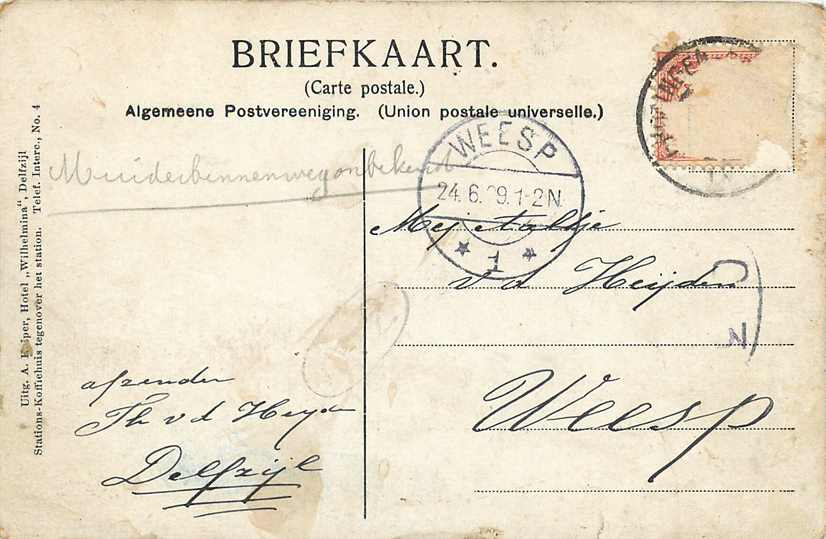 BRIEFKAART.
(Carte postale.)
Algemeene Postvereeniging. (Union postale universelle.)
Muiderbinnenweg onbekend
WEESP
24. 6. 09. 1-2N.
1
Mej
v. d. Heijden
Weesp
afzender
Th v d Heyden
Delfzijl
Uitg. A. Kuiper, Hotel „Wilhelmina", Delfzijl
Stations-Koffiehuis tegenover het station. Telef. Interc., No. 4
N